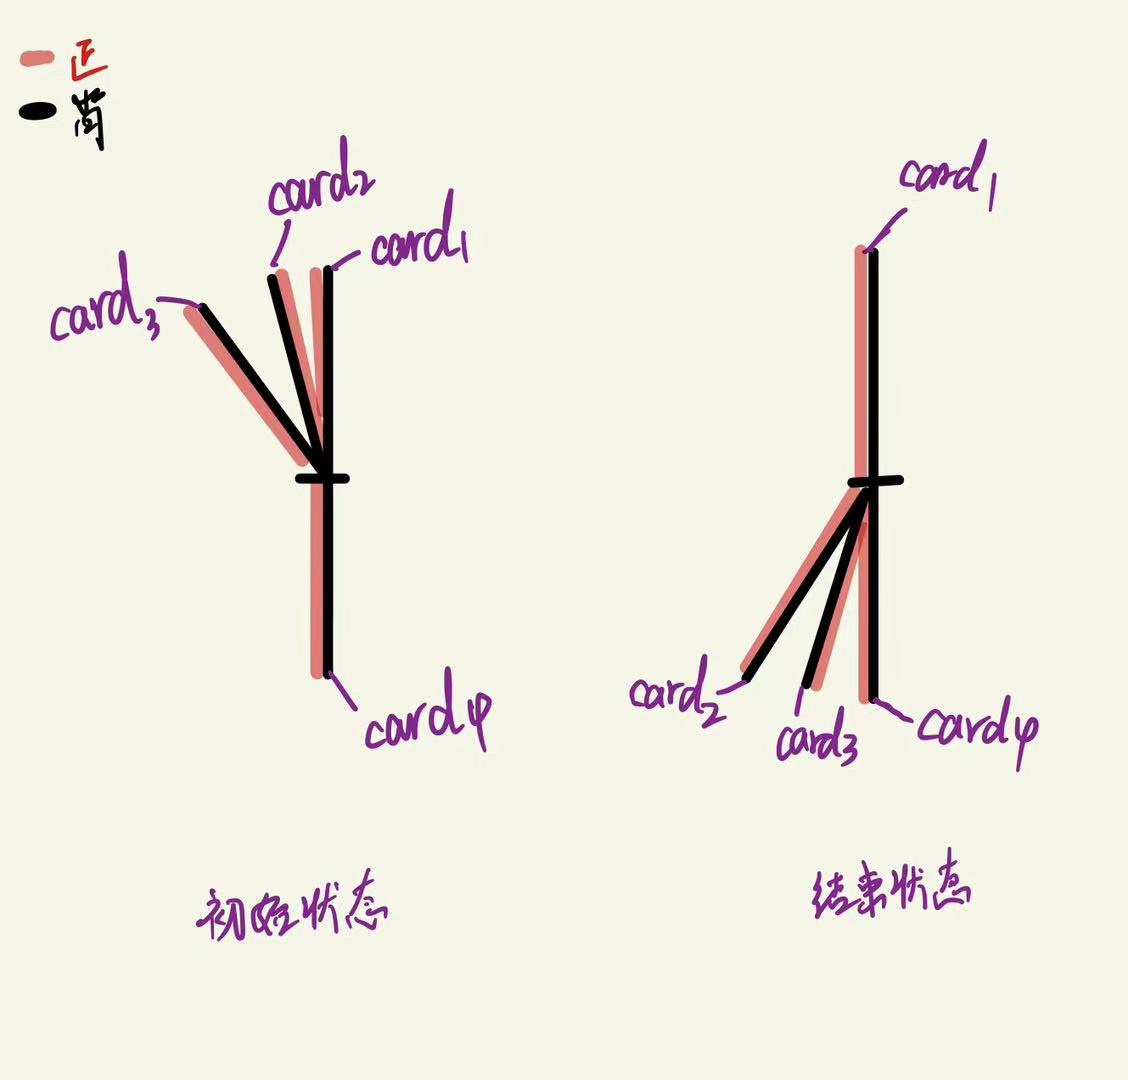 正
card2
card1
card3
card4
初始状态
card1
card2
card3
card4
结束状态